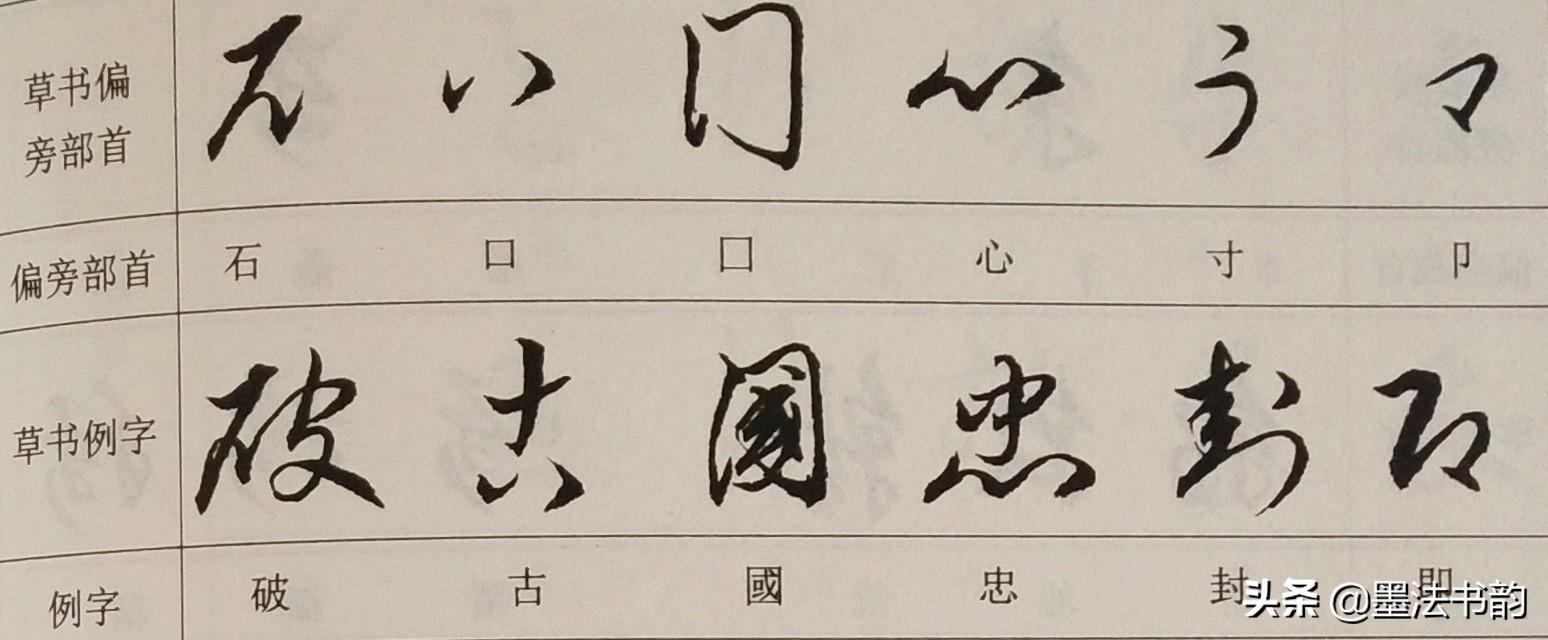 草书偏
旁部首
石 口 门 心 寸 卩
偏旁部首 石 口 囗 心 寸 卩
草书例字 破 古 國 忠 封 即
例字 破 古 國 忠 封 即
头条 @墨法书韵